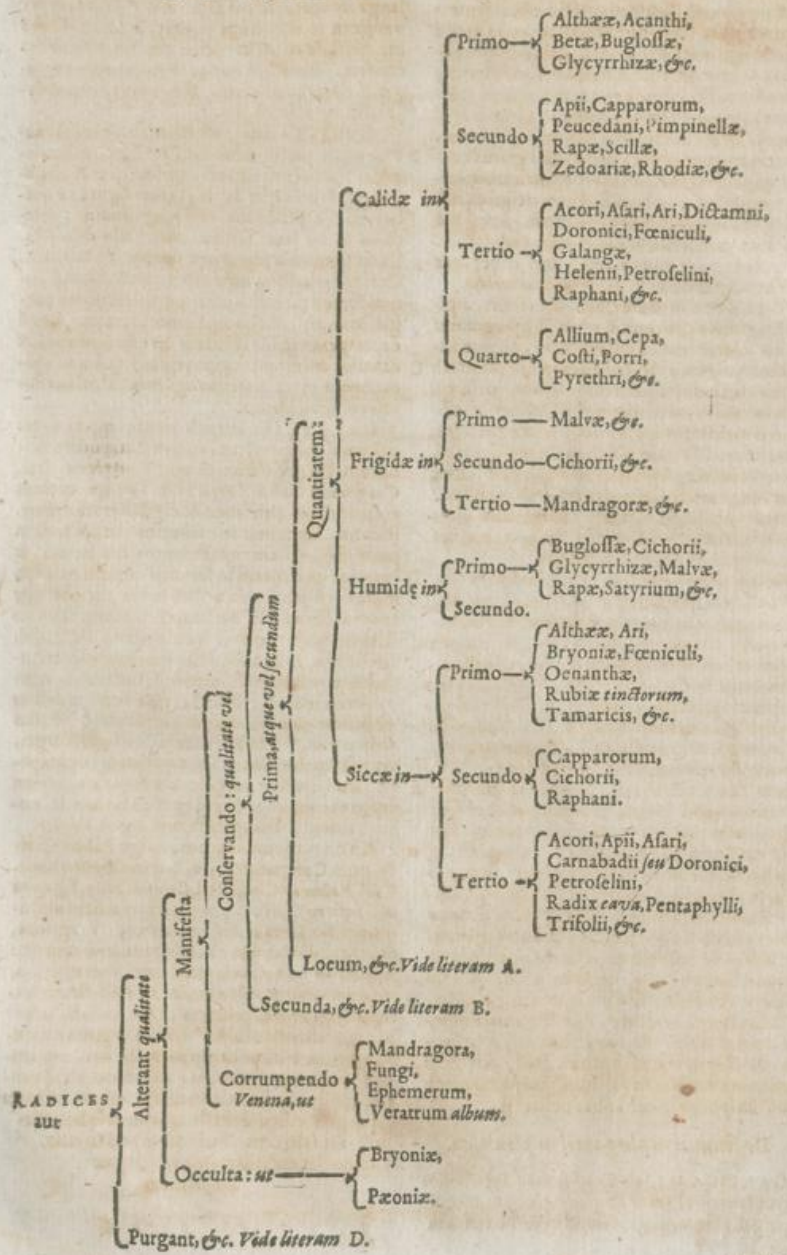 RADICES
aut
Alterant qualitate
Manifesta
Conservando: qualitate vel
Prima, atque vel secundùm
Quantitatem:
Calidæ in
Primo
Althææ, Acanthi,
Betæ, Buglossæ,
Glycyrrhizæ, &c.
Secundo
Apii, Capparorum,
Peucedani, Pimpinellæ,
Rapæ, Scillæ,
Zedoariæ, Rhodiæ, &c.
Tertio
Acori, Asari, Ari, Dictamni,
Doronici, Fœniculi,
Galangæ,
Helenii, Petroselini,
Raphani, &c.
Quarto
Allium, Cepa,
Costi, Porri,
Pyrethri, &c.
Frigidæ in
Primo — Malvæ, &c.
Secundo — Cichorii, &c.
Tertio — Mandragoræ, &c.
Humidę in
Primo
Buglossæ, Cichorii,
Glycyrrhizæ, Malvæ,
Rapæ, Satyrium, &c,
Secundo.
Siccæ in
Primo
Althææ, Ari,
Bryoniæ, Fœniculi,
Oenanthæ,
Rubiæ tinctorum,
Tamaricis, &c.
Secundo
Capparorum,
Cichorii,
Raphani.
Tertio
Acori, Apii, Asari,
Carnabadii seu Doronici,
Petroselini,
Radix cava, Pentaphylli,
Trifolii, &c.
Locum, &c. Vide literam A.
Secunda, &c. Vide literam B.
Corrumpendo
Venena, ut
Mandragora,
Fungi,
Ephemerum,
Veratrum album.
Occulta: ut
Bryoniæ,
Pæoniæ.
Purgant, &c. Vide literam D.